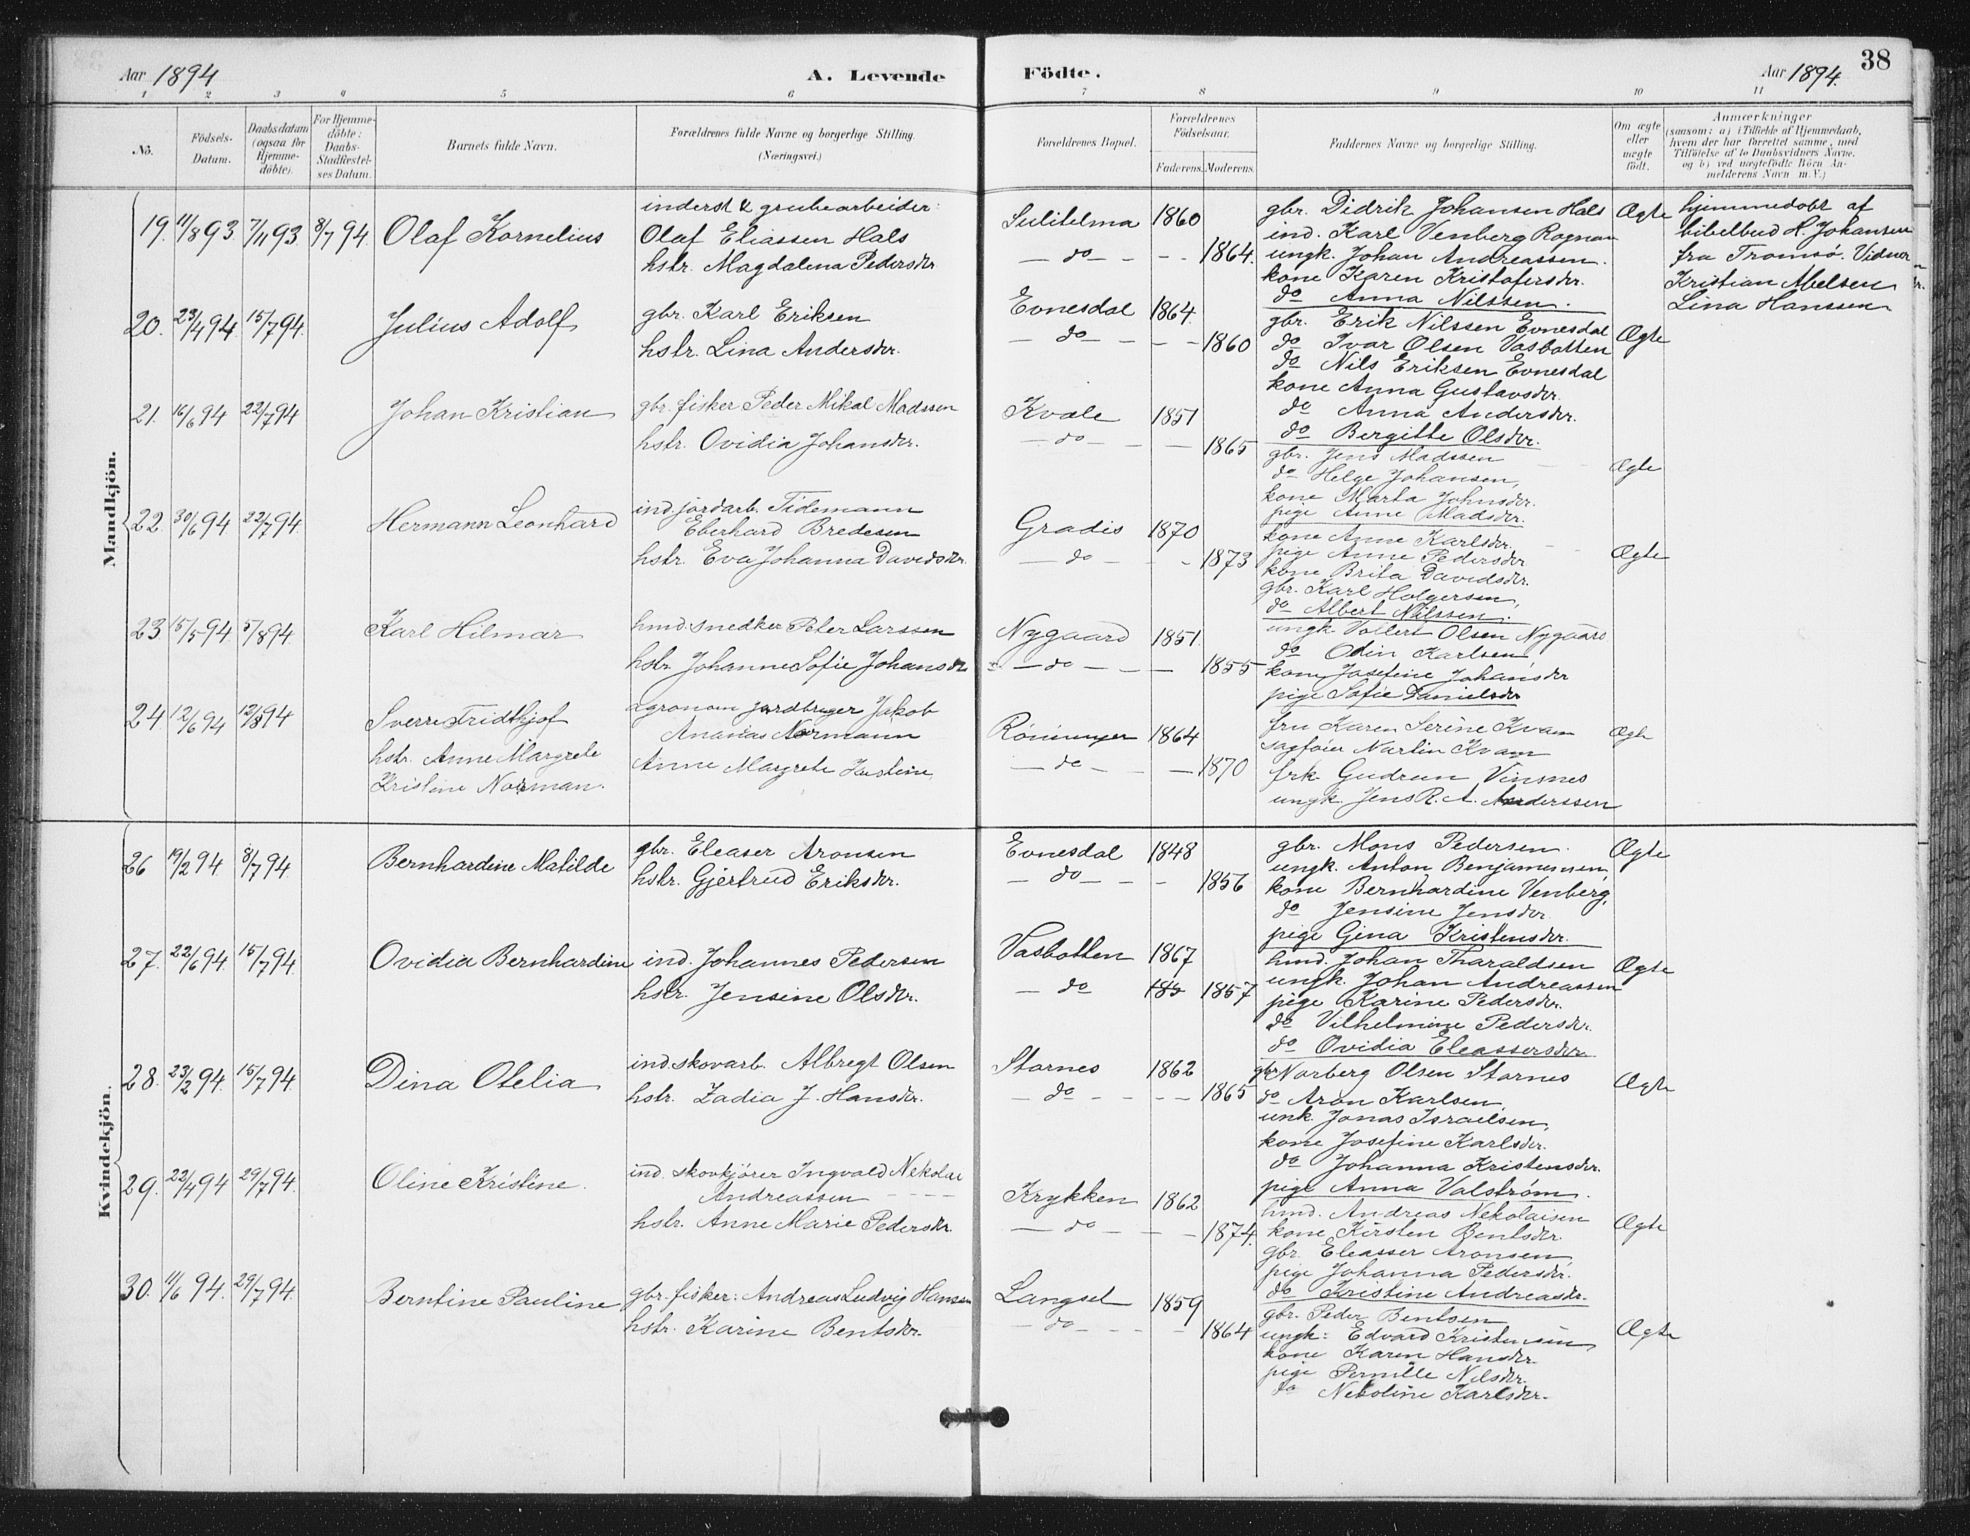 38
Aar 1894
A. Levende
Födte.
Aar 1894.
1 2 3 4 5 6 7 8 9 10 11
No.
Födsels-Datum.
Daabsdatum (ogsaa for Hjemme-döbte).
For Hjemme-döbte: Daabs-Stadfæstel-ses Datum.
Barnets fulde Navn.
Forældrenes fulde Navne og borgerlige Stilling.
(Næringsvei.)
Forældrenes Bopæl.
Forældrenes Födselsaar.
Faderens. Moderens.
Faddernes Navne og borgerlige Stilling.
Om ægte eller uægte födt.
Anmærkninger
(saasom: a) i Tilfælde af Hjemmedaab,
hvem der har forrettet samme, med
Tilföielse af to Daabsvidners Navne,
og b) ved uægtefödte Börn An-
melderens Navn m. V.)
Mandkjön.
19. 11/8 93 7/11 93 8/7 94 Olaf Kornelius
inderst & grubearbeider:
Olaf Eliassen Hals
hstr. Magdalena Pedersdtr
Sulitelma 1860
— do — - - 1864.
gbr. Didrik Johansen Hals
ind. Karl Venberg Rognan
ungk. Johan Andreassen.
kone Karen Kristofersdtr.
do Anna Nilssen.
Ægte
hjemmedöbt af
bibelbud H. Johansen
fra Tromsö. Vidner
Kristian Nielsen
Lina Hanssen
20. 23/4 94 15/7 94. Julius Adolf
gbr. Karl Eriksen
hstr. Lina Andersdtr.
Evnesdal 1864.
— do — - - 1860
gbr. Erik Nilssen Evnesdal
do Ivar Olsen Vasbotten
do Nils Eriksen Evnesdal
kone Anna Gustavsdtr.
do Anna Andersdtr.
do Bergitte Olsdtr.
Ægte
21. 16/6 94 22/7 94 Johan Kristian
gbr. fisker Peder Mikal Madssen
hstr. Ovidia Johansdtr.
Kvale 1851
— do — - 1865
gbr. Jens Madssen
do Helge Johansen,
kone Marta Johnsdtr.
pige Anne Madsdtr.
Ægte
22. 30/6 94 22/7 94. Hermann Leonhard
ind. jordarb. Tidemann
Eberhard Bredesen
hstr. Eva Johanna Davidsdtr.
Gradis 1870
— do - - 1873
kone Anne Karlsdtr.
pige Anne Pedersdtr
kone Brita Davidsdtr.
gbr. Karl Holgersen,
do Albert Nilssen.
Ægte
23 15/5 94 5/8 94. Karl Hilmar
hmd. snedker Peter Larssen
hstr. Johanne Sofie Johansdtr
Nygaard 1851.
— do — - — 1855
ungk. Vollert Olsen Nygaard
do Odin Karlsen,
kone Josefine Johansdtr
pige Sofie Danielsdtr
24. 12/6 94 12/8 94 Sverre Fridthjof
hstr. Anne Margrete
Kristine Norman.
agronom jordbruger Jakob
Ananias Normann
Anne Margrete Kristine
1864
— do - - — 1870
fru Karen Serine Kvam
sagfører Martin Kvam
frk. Gudrun Vinsnes
ungk. Jens R. A. Anderssen
Ægte
Kvindekjön.
26 19/2 94 8/7 94 Bernhardine Matilde
gbr. Eleaser Aronsen
hstr. Gjertrud Eriksdtr.
Evnesdal 1848
— do — - - 1856
gbr. Mons Pedersen.
ungk. Anton Benjaminsen,
kone Bernhardine Venberg,
do Jensine Jensdtr
pige Gina Kristensdtr.
Ægte
27. 22/6 94. 15/7 94 Ovidia Bernhardine
ind. Johannes Pedersen
hstr. Jensine Olsdtr.
Vasbotten 1867
— do 185 1857
hmd. Johan Tharaldsen
ungk. Johan Andreassen
pige Karine Pedersdtr.
do Vilhelmine Pedersdtr.
do Ovidia Eleassersdtr
Ægte
28. 23/2 94. 15/7 94. Dina Otelia
ind. skovarb. Albregt Olsen
hstr. Zadia J. Hansdtr.
Stornes 1862
— do - - — 1865
gbr Norberg Olsen Stornes
do Aron Karlsen
unk. Jonas Israelsen,
kone Josefine Karlsdtr.
do Johanna Kristensdtr.
pige Anna Valstrøm.
Ægte
29. 22/4 94 29/7 94. Oline Kristine.
ind. skovkjører Ingvald Nekolai
Andreassen
hstr. Anne Marie Pedersdtr.
Krykken 1862
— do - - — 1874.
hmd. Andreas Nekolaisen
kone Kirsten Bentsdtr.
gbr. Eleasser Aronsen,
pige Johanna Pedersdtr.
do Kristine Andreasdtr.
Ægte
30. 11/6 94. 29/7 94. Berntine Pauline
gbr. fisker: Andreas Ludvig Hansen
hstr. Karine Bentsdtr.
Langset 1859
— do - - - 1864
gbr. Peder Bentsen
ungk: Edvard Kristensen
kone Karen Hansdtr.
pige Pernille Nilsdtr.
do Nekoline Karlsdtr.
Ægte